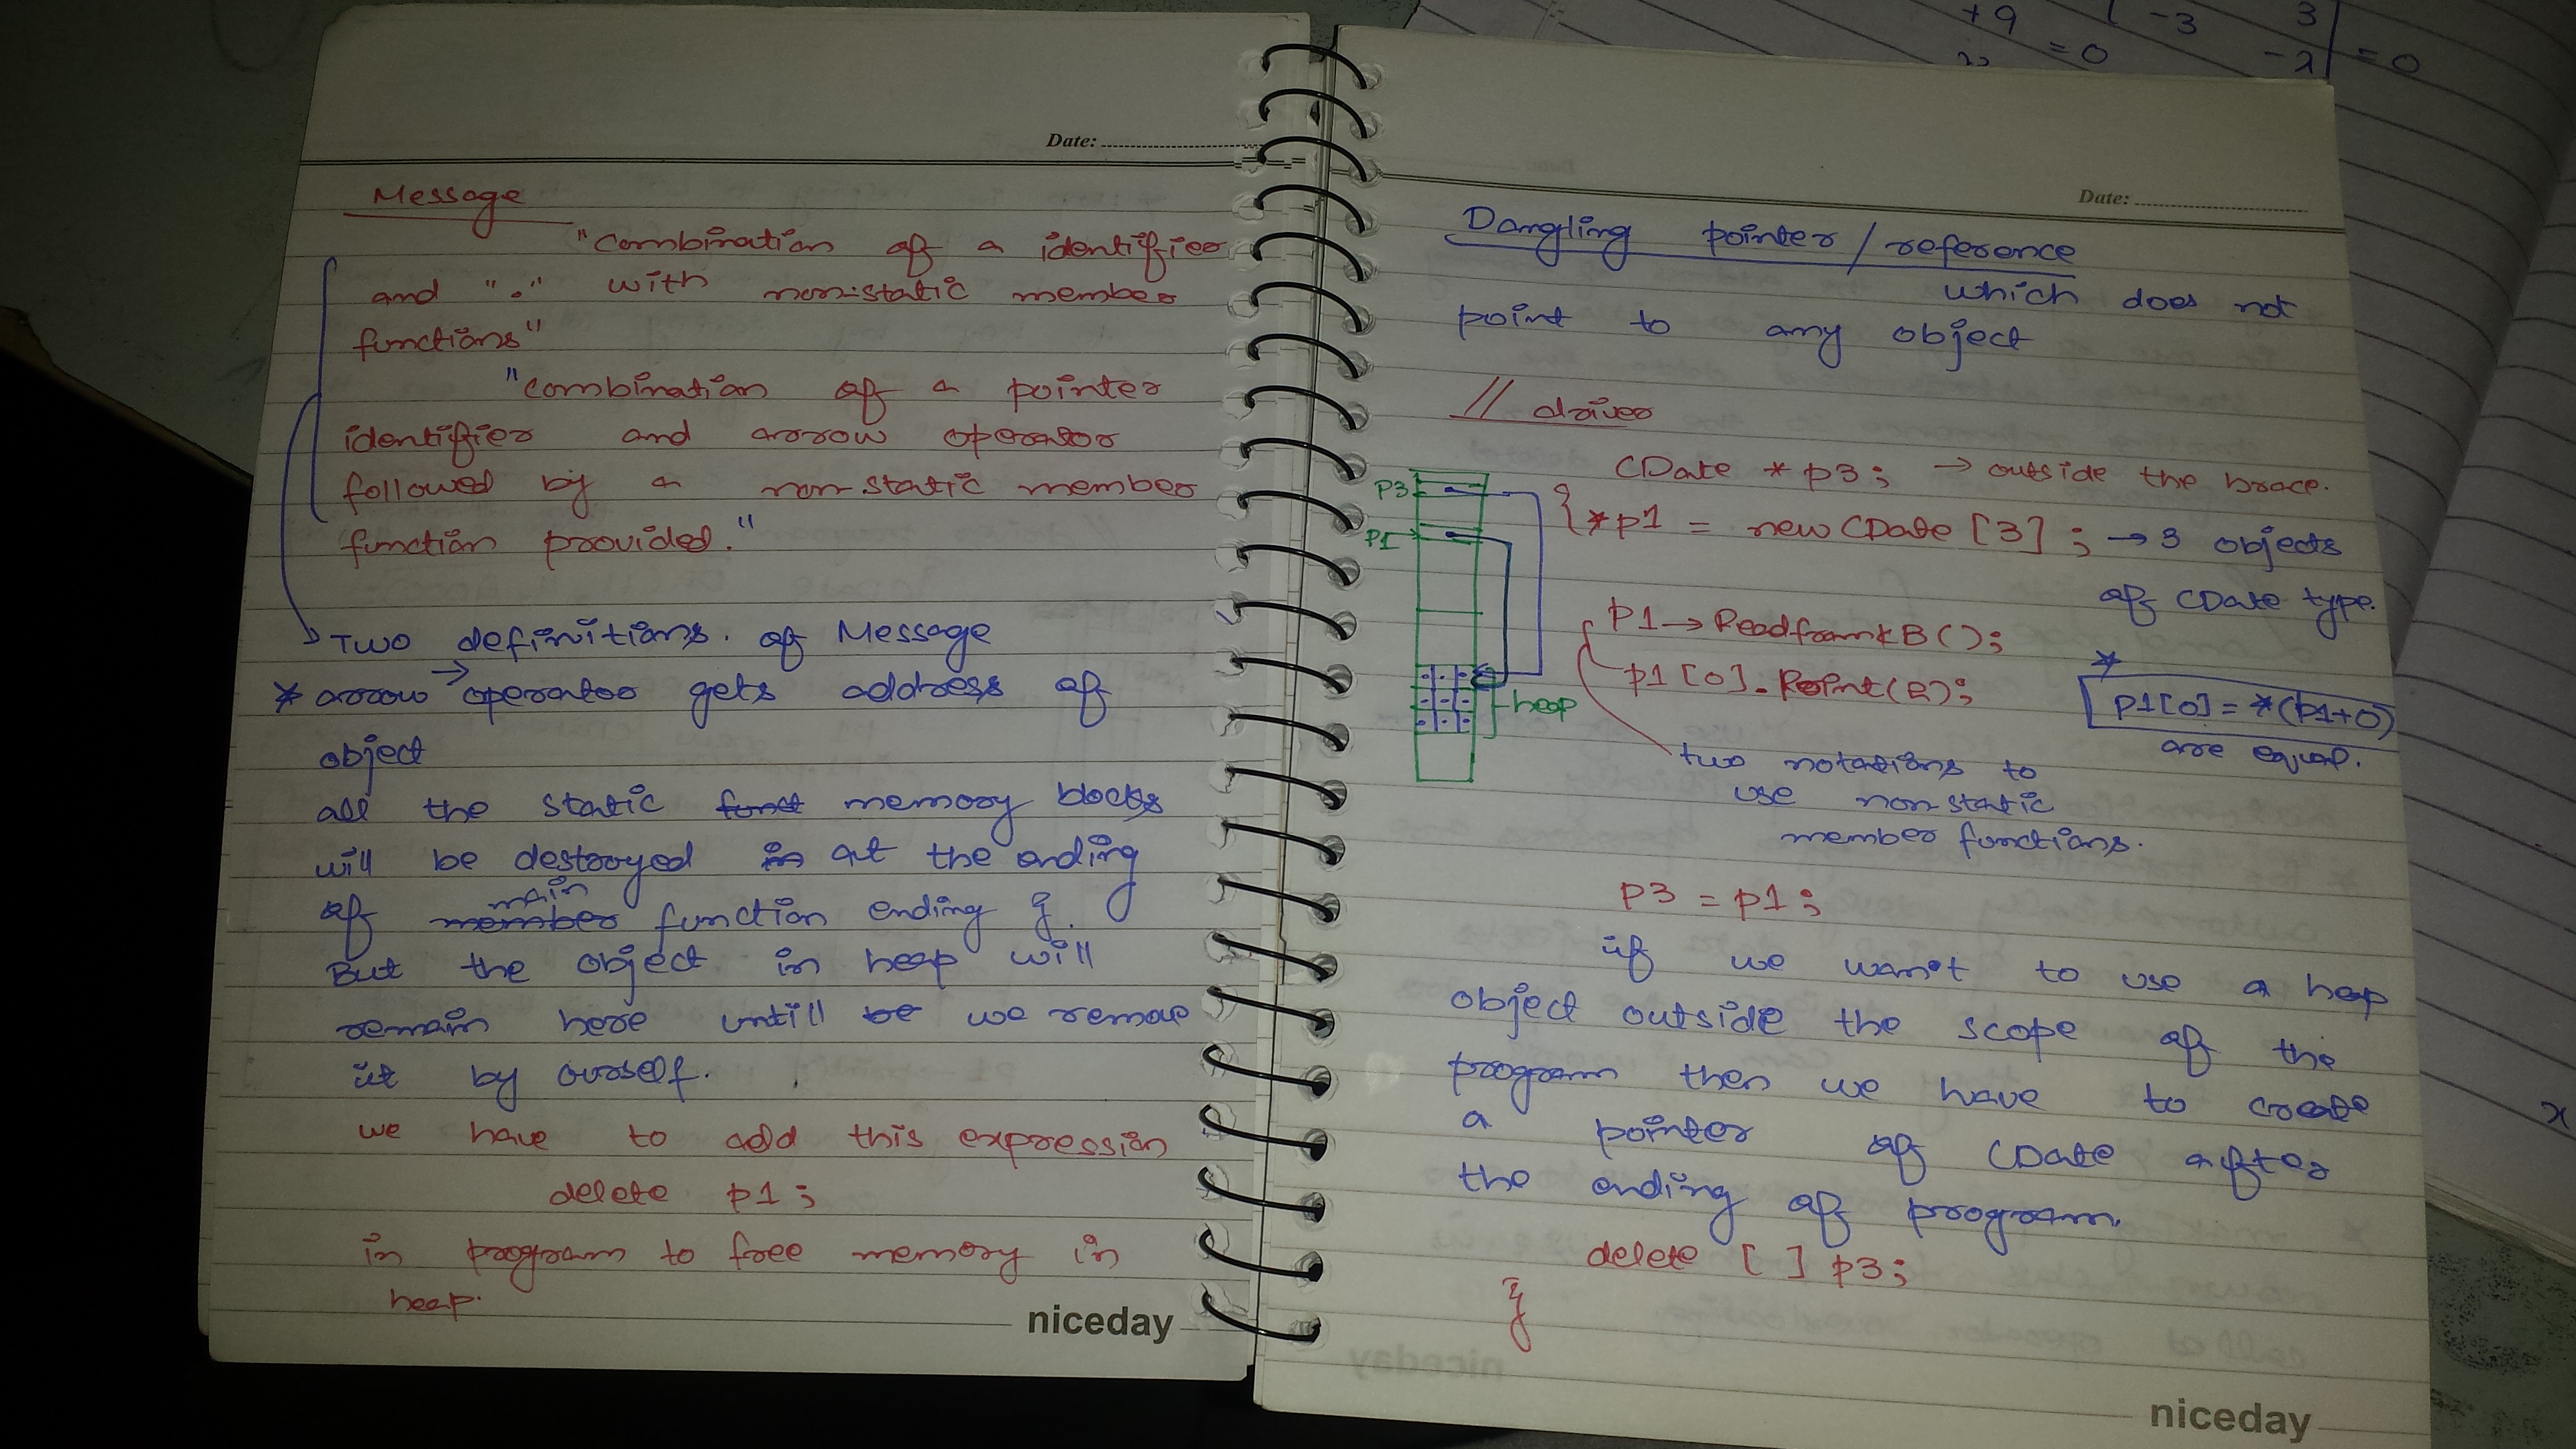 Date:
Message
"Combination of a identifier
and "." with non-static member
functions"
"combination of a pointer
identifier and arrow operator
followed by a non-static member
function provided."
Two definitions. of Message
* arrow → operator gets address of
object
all the static funct memory blocks
will be destroyed in at the ending
of member main function ending }.
But the object in heap will
remain here untill be we remove
it by ourself.
we have to add this expression
delete p1;
in program to free memory in
heap.
niceday
Date:
Dangling pointer/reference
which does not
point to any object
// driver
CDate *p3; → outside the brace.
{ *p1 = new CDate [3]; → 3 objects
of CDate type.
P3
P1
heap
p1→ReadfromkB();
p1[0].
*
p1[0] = *(p1+0)
are equal.
two notations to
use non static
member functions.
p3 = p1;
if we want to use a heap
object outside the scope of the
program then we have to create
a pointer of CDate after
the ending of program.
delete [ ] p3;
}
niceday
+9 -3 3
= 0 -2 = 0
x